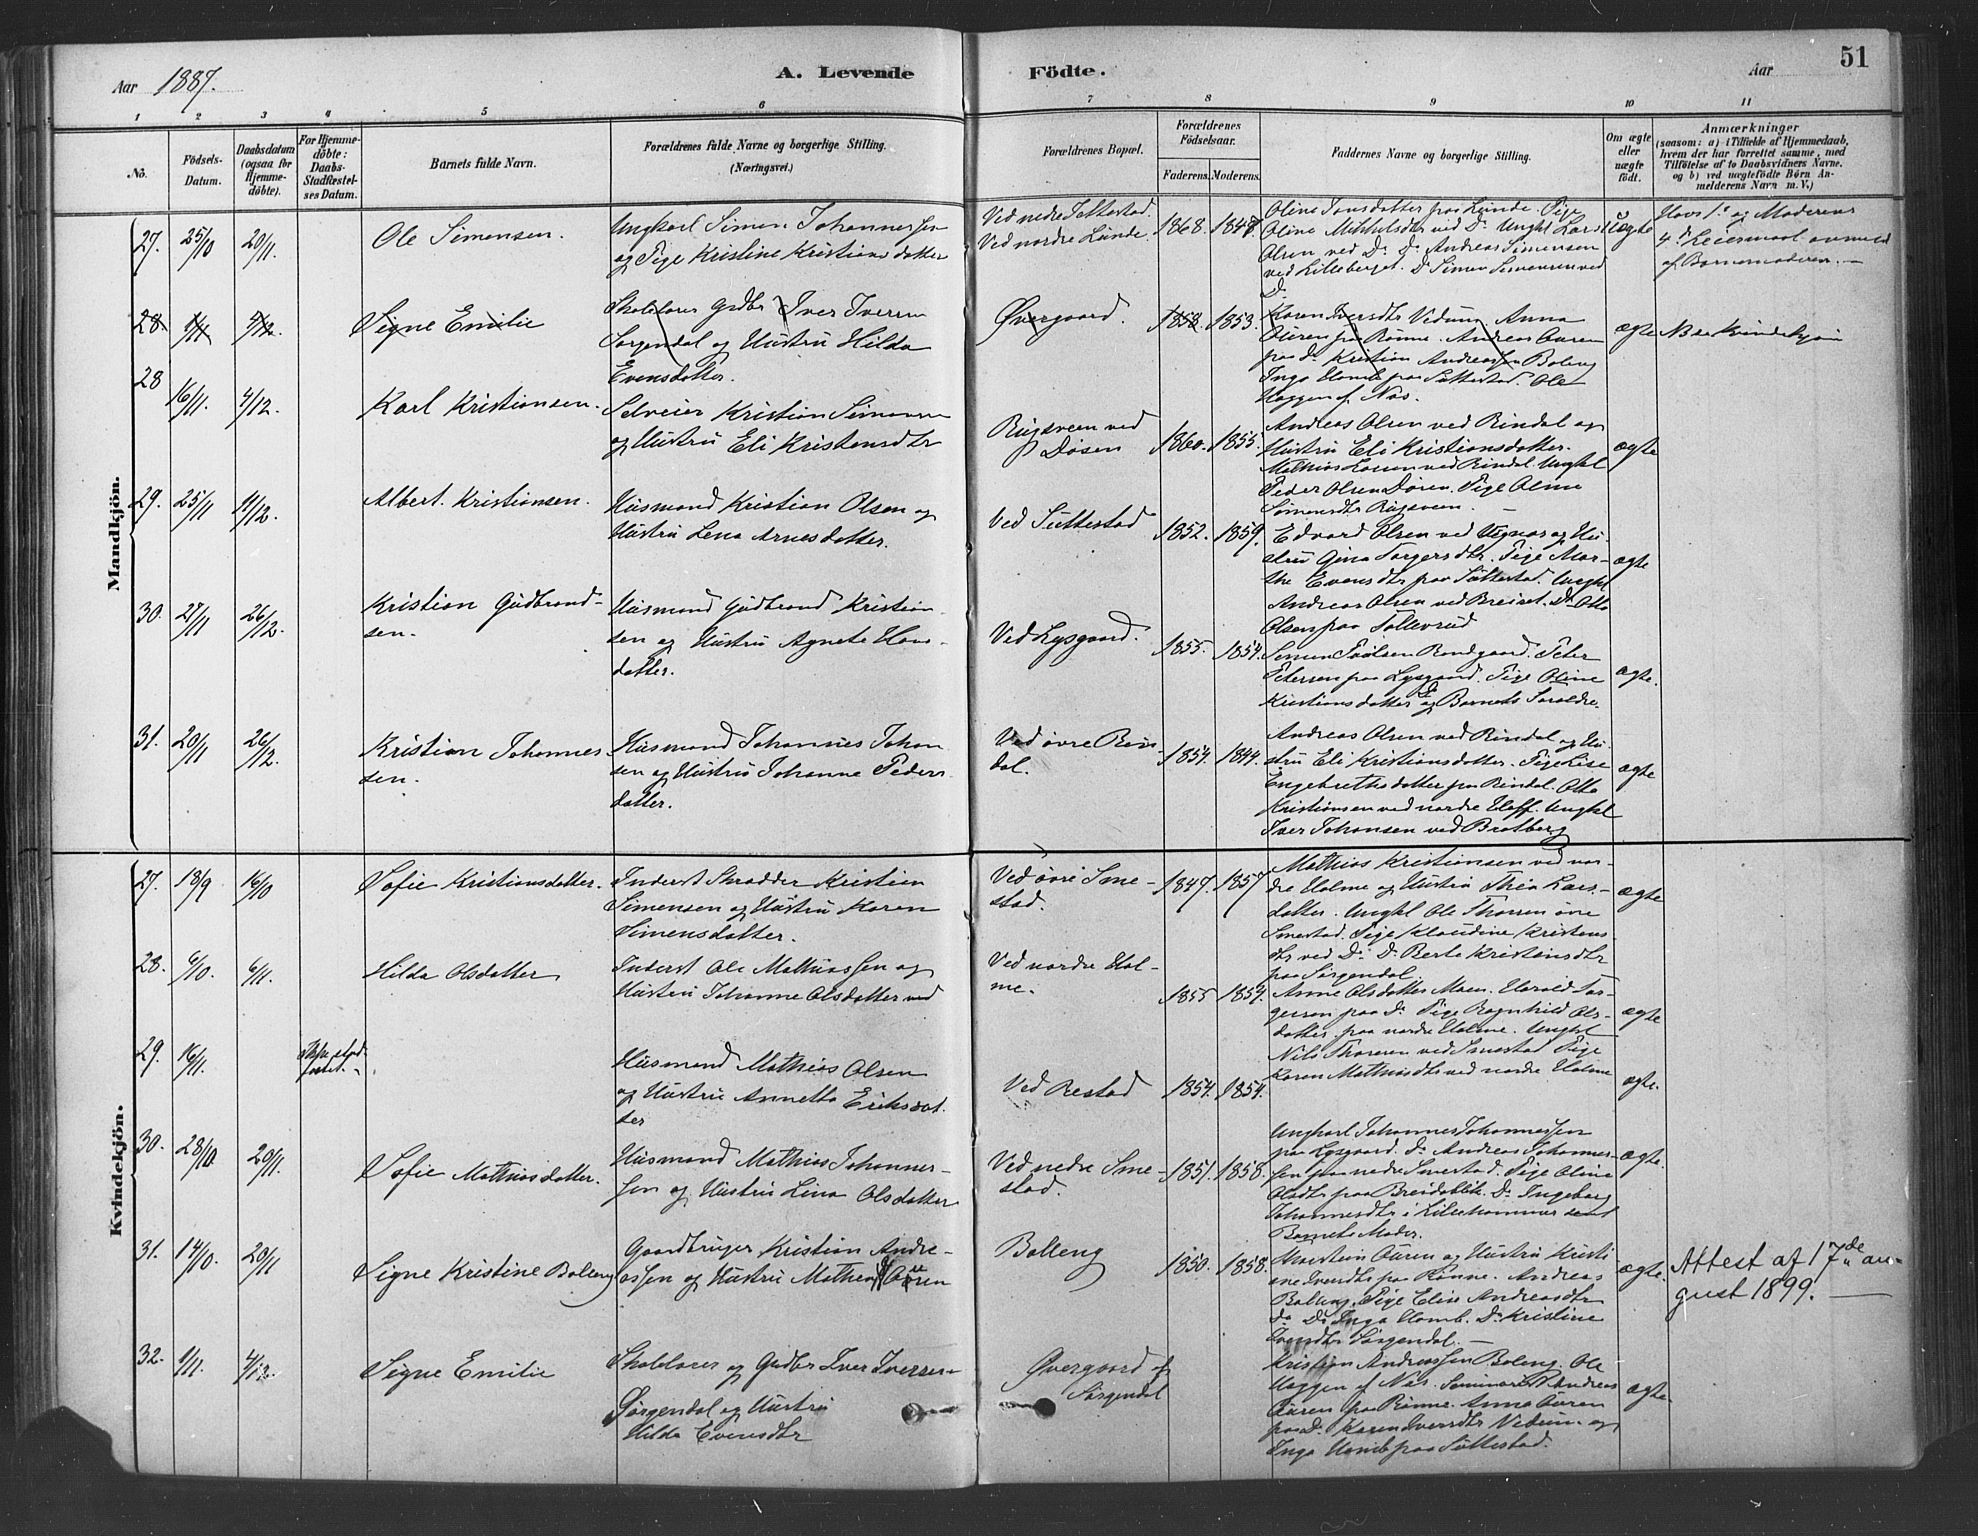 Aar 1887.
A. Levende
Födte.
Aar
51
1 2 3 4 5 6 7 8 9 10 11
No.
Födsels-
Datum.
Daabsdatum
(ogsaa for
Hjemme-
döbte).
For Hjemme-
döbte:
Daabs-
Stadfæstel-
ses Datum.
Barnets fulde Navn.
Forældrenes fulde Navne og borgerlige Stilling.
(Næringsvei.)
Forældrenes Bopæl.
Forældrenes
Födselsaar.
Faderens. Moderens.
Faddernes Navne og borgerlige Stilling.
Om ægte
eller
uægte
födt.
Anmærkninger
(saasom: a) i Tilfælde af Hjemmedaab,
hvem der har forrettet samme, med
Tilföielse af to Daabsvidners Navne.
og b) ved uægtefödte Börn An-
melderens Navn m. V.)
Mandkjön.
27. 25/10 20/11. Ole Simensen.
Ungkarl Simen Johannessen
og Pige Kristine Kristiansdatter
Ved nedre Suttestad.
Ved nordre Lunde.
1868. 1848.
Oline Jonsdatter paa Lunde. Pige
Oline Mikkelsdtr ved Do. Ungkl Lars
Olsen ved Do. Do Andreas Simensen
ved Lilleberget. Do Simen ved
Do.
uægte
Hans 1ste og Moderens
4de Leiermaal anmeld
af Barnemoderen.
28. 1/11 4/12. Signe Emilie
Skolelærer Gdbr Iver Iversen
Sørgendal og Hustru Hilda
Evensdatter.
Øvergaard.
1858. 1853.
Karen Iversdtr Vedum. Anna
Auren paa Rønne. Andreas Auren
paa Do. Kristian Andreassen Boleng
Inga Homb paa Suttestad. Ole
Haggen af Næs.
ægte
NB er Kvindekjøn
28 16/11. 4/12. Karl Kristiansen.
Selveier Kristian Simensen
og Hustru Eli Kristensdtr
Rugsveen ved
Døsen
1860. 1855.
Andreas Olsen ved Rindal og
Hustru Eli Kristiansdatter.
Mathias Larsen ved Rindal. Ungkl
Peder Olsen Døsen. Pige Oline
Simensdtr Rugsveen.
ægte
29. 25/11 11/12. Albert Kristiansen.
Husmand Kristian Olsen og
Hustru Lena Arnesdatter.
Ved Suttestad
1852. 1859.
Edvard Olsen ved Vignæs og Hu-
stru Gina Torgersdtr. Pige Mar-
the Evensdtr paa Suttestad. Ungkl
Andreas Olsen ved Breiset. Do Otto
Olsen paa Sollevrud
ægte
30. 27/11 26/12. Kristian Gudbrand-
sen.
Husmand Gudbrand Kristian-
sen og Hustru Agnete Hans-
datter.
Ved Lysgaard.
1855. 1854.
Simen Poulsen Rondgaard. Peter
Petersen paa Lysgaard. Pige Oline
Kristiansdatter Do og Barnets Forældre.
ægte.
31. 20/11 26/12. Kristian Johannes-
sen.
Husmand Johannes Johan-
sen og Hustru Johanne Peders-
datter.
Ved øvre Rin-
dal.
1854. 1844.
Andreas Olsen ved Rindal og Hu-
stru Eli Kristiansdatter. Pige Lise
Engebrethsdatter paa Rindal. Otto
Kristiansen ved nordre Hoff. Ungkl
Iver Johansen ved Bratberg
ægte
Kvindekjön.
27. 18/9 16/10 Sofie Kristiansdatter.
Inderst Skrædder Kristian
Simensen og Hustru Karen
Simensdatter.
Ved øvre Sme-
stad.
1847. 1857
Mathias Kristiansen ved nor-
dre Holme og Hustru Thea Lars-
datter. Ungkl Ole Thorsen øvre
Smestad. Pige Klaudine Kristens-
dtr ved Do. Do Berte Kristiansdtr
paa Sørgendal.
ægte
28. 6/10. 6/11. Hilda Olsdatter
Inderst Ole Mathiassen og
Hustru Johanne Olsdatter ved
Ved nordre Hol-
me.
1855 1859.
Anne Olsdatter Moen. Harald Tor-
gersen paa Do. Pige Ragnhild Ols-
datter paa nordre Holme. Ungkl
Nils Thoresen ved Smestad. Pige
Karen Mathiasdtr ved nordre Holme
ægte
29. 16/11.
Husmand Mathias Olsen
og Hustru Annette Eriksdat-
ter
Ved Restad
1854. 1854.
ægte.
30. 28/10. 20/11. Sofie Mathiasdatter.
Husmand Mathias Johannes-
sen og Hustru Lina Olsdatter
Ved nedre Sme-
stad.
1851. 1858.
Ungkarl Johannes Johannessen
paa Lysgaard. Do Andreas Johannes-
sen paa nedre Smestad. Pige Oline
Olsdtr paa Breidablik. Do Ingeborg
Johannesdtr i Lillehammer samt
Barnets Moder.
ægte.
31. 14/10. 20/11 Signe Kristine Boleng
Gaardbruger Kristian Andre-
assen og Hustru Mathea Auren
Bolleng
1850. 1858.
Auren og Hustru Kristi-
ane Iversdtr paa Rønne. Andreas
Bolleng. Pige Eline Andreasdtr
Do. Do Inga Homb. Do Kristine
Iversdtr Sørgendal.
ægte.
Attest af 17de au-
gust 1899.
32. 1/11. 4/12. Signe Emilie
Skolelærer og Gudbr Iver Iversen
Sørgendal og Hustru
Hilda Evensdtr
Øvergaard af
Sørgendal
Kristian Andreassen Boleng. Ole
Haggen af Næs. Seminarist Andreas
Auren paa Rønne. Anna Auren
paa Do. Karen Iversdtr Vedum og
Inga Homb paa Suttestad.
ægte.